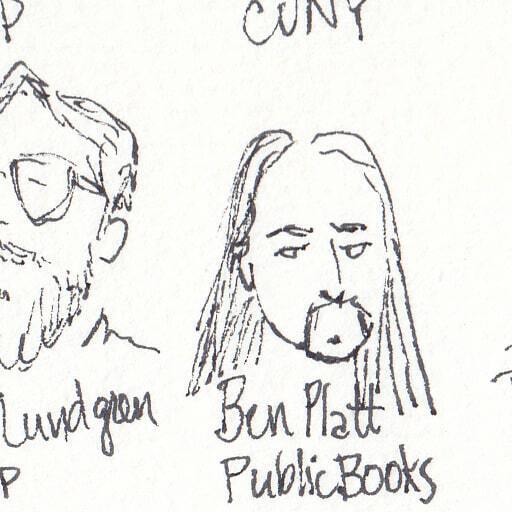 P CUNY
Lundgren
P
Ben Platt
Public Books